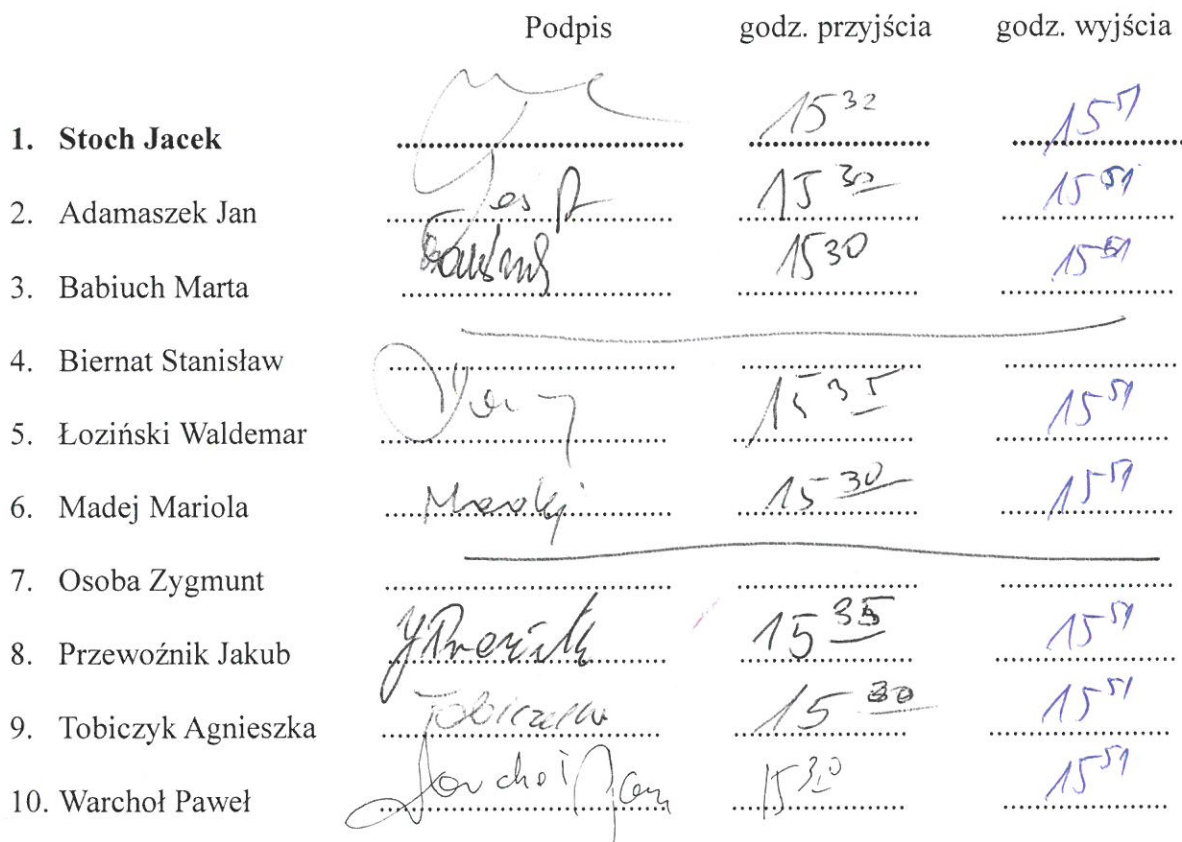 Podpis godz. przyjścia godz. wyjścia
1. Stoch Jacek 15 32 15 51
2. Adamaszek Jan 15 30 15 51
3. Babiuch Marta 15 30 15 51
4. Biernat Stanisław
5. Łoziński Waldemar 15 35 15 51
6. Madej Mariola Madej 15 30 15 51
7. Osoba Zygmunt
8. Przewoźnik Jakub 15 35 15 51
9. Tobiczyk Agnieszka Tobiczyk 15 30 15 51
10. Warchoł Paweł 15 30 15 51